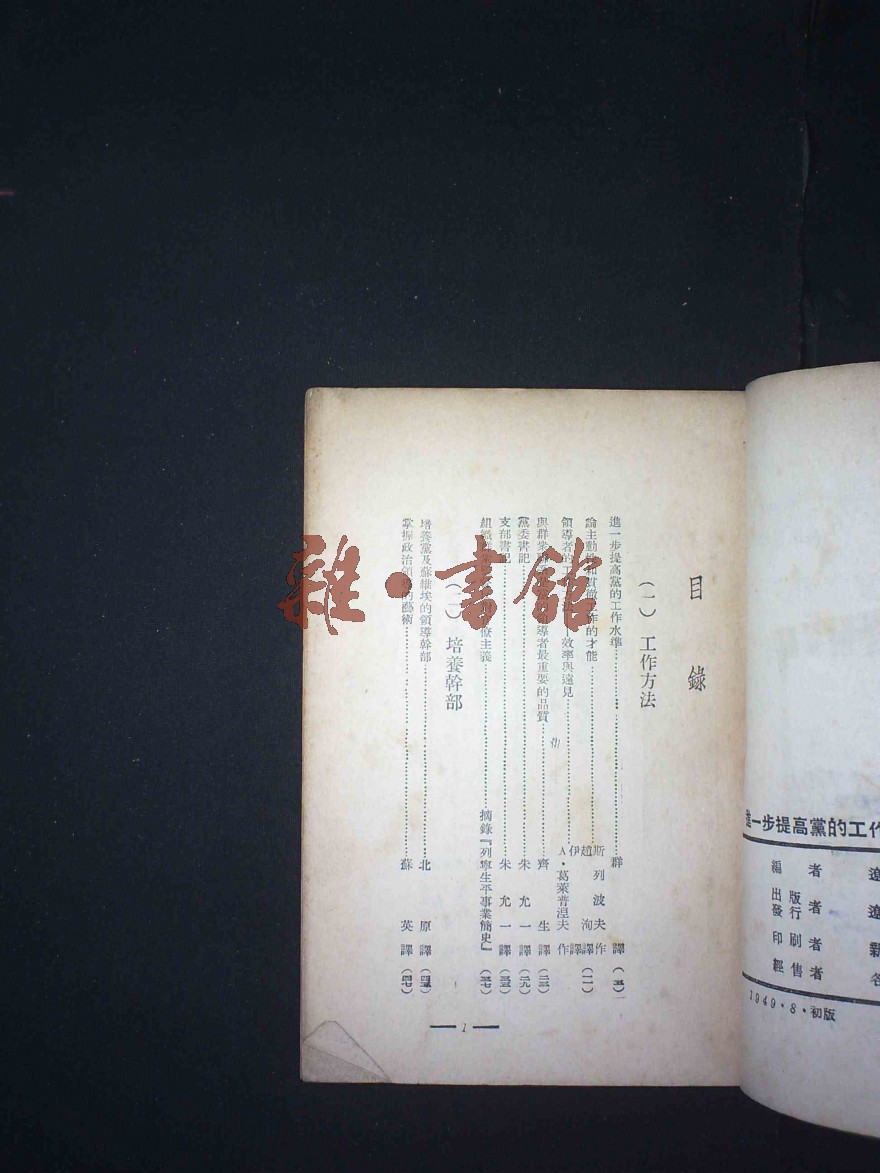 目 錄
(一)工作方法
進一步提高黨的工作水準 群 譯
論主動性和貫徹工作的才能 斯列波夫作 趙洵譯(一一)
領導者的工作 效率與遠見 A·葛萊普涅夫作 伊 譯
與群衆 導者最重要的品質 齊 生 譯(二二)
黨委書記 朱 允 一 譯(二九)
支部書記 朱 允 一 譯(三三)
組織 僚主義 摘錄『列寧生平事業簡史』(三七)
(二)培養幹部
培養黨及蘇維埃的領導幹部 北 原 譯
掌握政治領 的藝術 蘇 英 譯
1
雜·書館
進一步提高黨的工作
編 者 遼
出版 發行 者 遼
印刷者 新
經售者 各
1949·8·初版